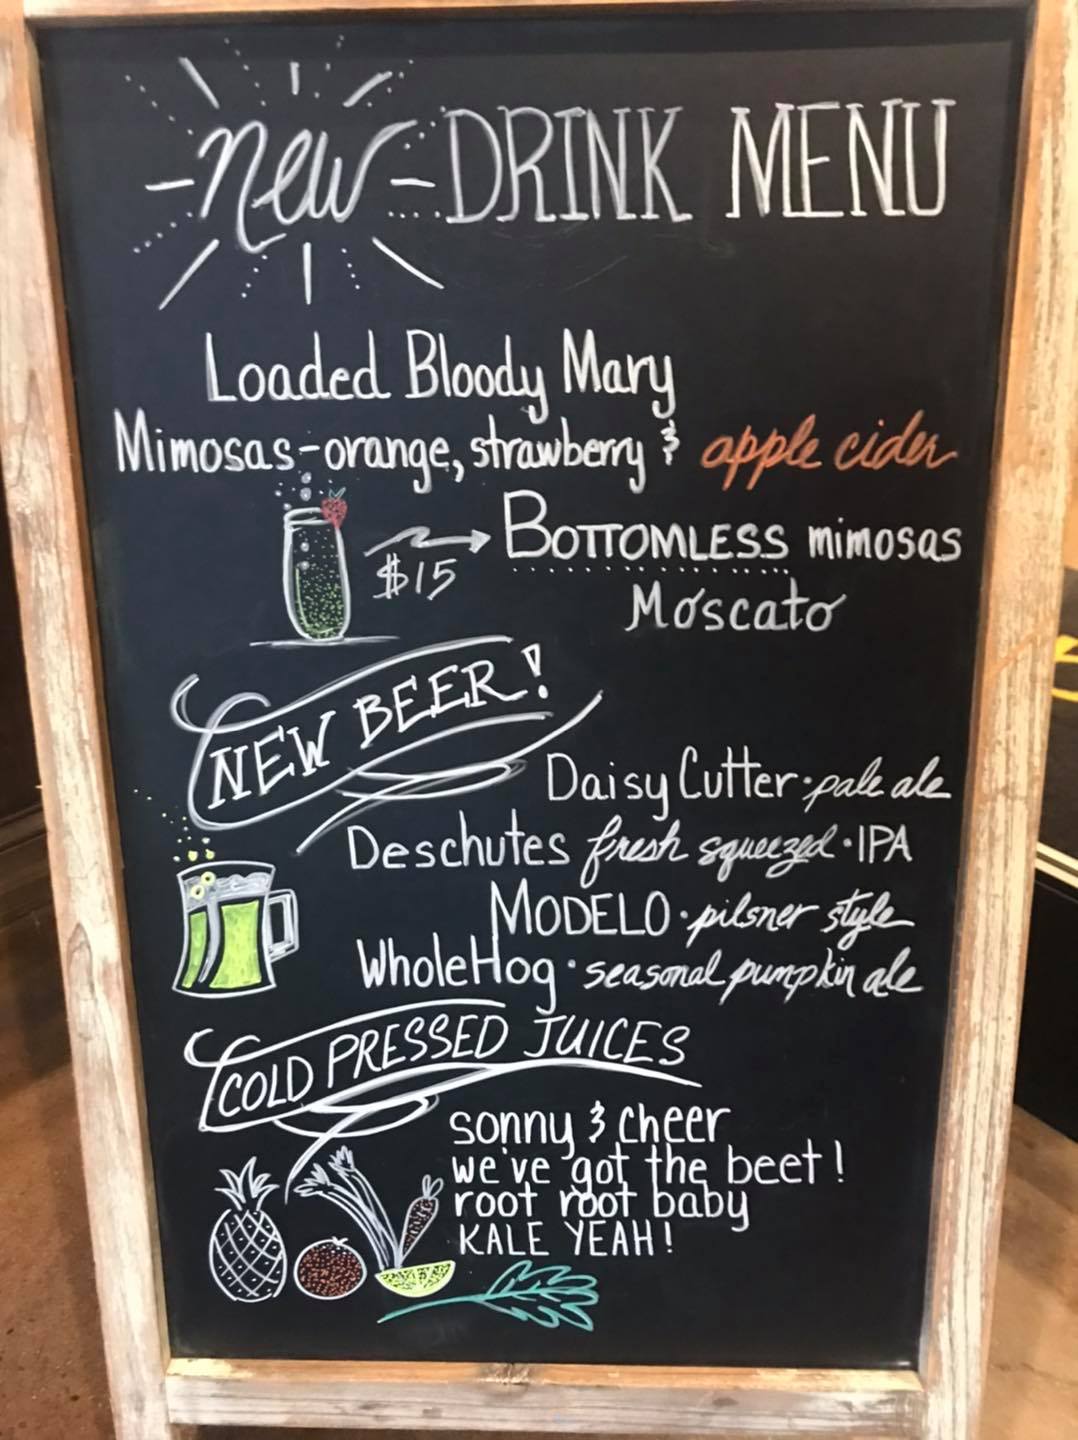 new DRINK MENU
Loaded Bloody Mary
Mimosas - orange, strawberry & apple cider
$15 BOTTOMLESS mimosas
Moscato
NEW BEER!
Daisy Cutter · pale ale
Deschutes fresh squeezed · IPA
MODELO · pilsner style
WholeHog · seasonal pumpkin ale
COLD PRESSED JUICES
sonny & cheer
we've got the beet!
root root baby
KALE YEAH!